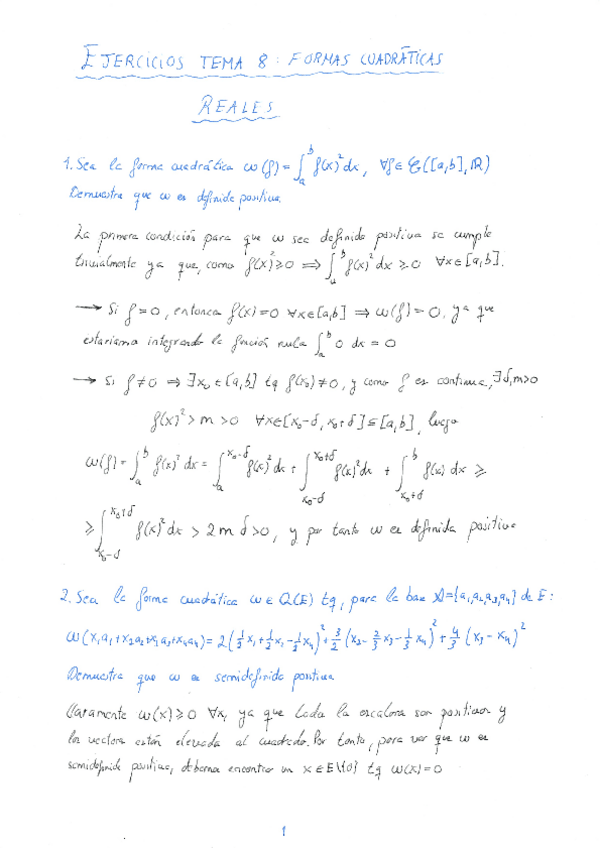 EJERCICIOS TEMA 8: FORMAS CUADRÁTICAS
REALES
1. Sea la forma cuadrática ω(f) = ∫_a^b f(x)² dx, ∀f ∈ C([a,b], ℝ)
Demuestra que ω es definida positiva
La primera condición para que ω sea definida positiva se cumple
trivialmente ya que, como f(x)² ≥ 0 ⟹ ∫_a^b f(x)² dx ≥ 0 ∀x∈[a,b].
→ Si f=0, entonces f(x)=0 ∀x∈[a,b] ⟹ ω(f)=0, ya que
estaríamos integrando la función nula ∫_a^b 0 dx = 0
→ Si f≠0 ⟹ ∃x₀∈[a,b] tq f(x₀)≠0, y como f es continua, ∃δ,m>0
f(x)² > m > 0 ∀x∈[x₀-δ, x₀+δ] ⊆ [a,b], luego
ω(f) = ∫_a^b f(x)² dx = ∫_a^{x₀-δ} f(x)² dx + ∫_{x₀-δ}^{x₀+δ} f(x)² dx + ∫_{x₀+δ}^b f(x) dx ≥
≥ ∫_{x₀-δ}^{x₀+δ} f(x)² dx > 2mδ > 0, y por tanto ω es definida positiva
2. Sea la forma cuadrática ω ∈ Q(E) tq, para la base A={a₁,a₂,a₃,a₄} de E:
ω(x₁a₁+x₂a₂+x₃a₃+x₄a₄) = 2(x₁+½x₂-½x₄)² + 3/2(x₂-2/3x₃-1/3x₄)² + 4/3(x₃-x₄)²
Demuestra que ω es semidefinida positiva
Claramente ω(x) ≥ 0 ∀x, ya que todos los escalares son positivos y
los vectores están elevados al cuadrado. Por tanto, para ver que ω es
semidefinida positiva, debemos encontrar un x∈E\{0} tq ω(x)=0
1